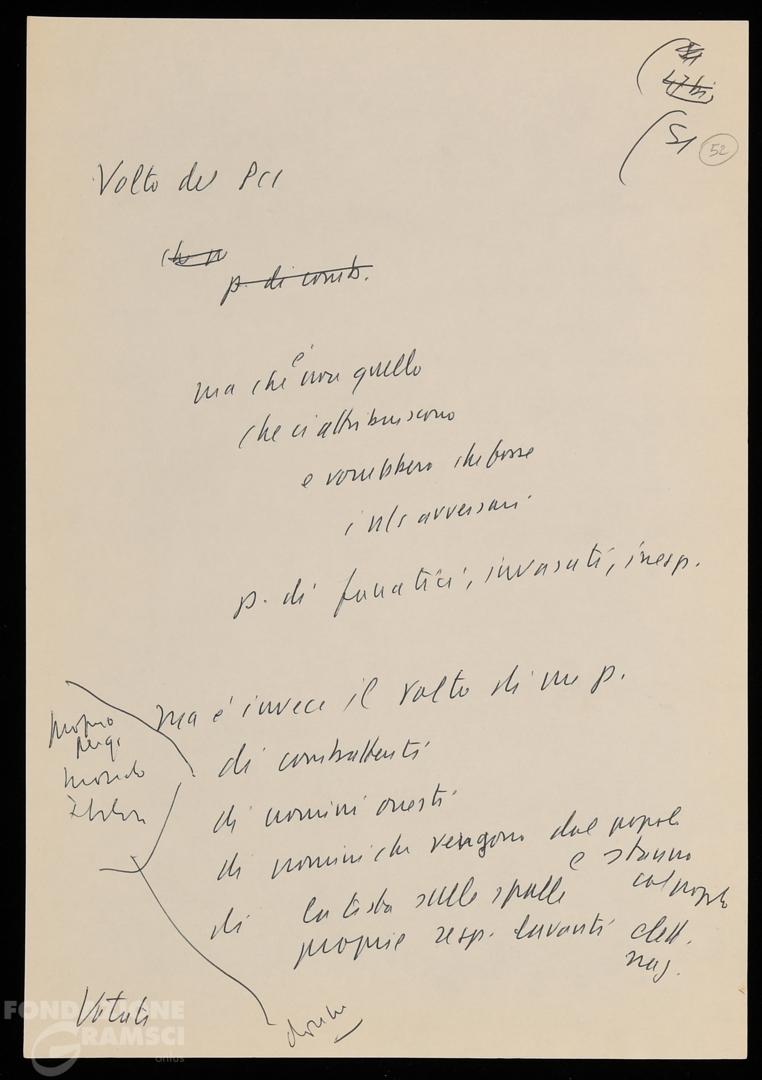 51
52
Volto del PCI
p. di comb.
ma che è non quello
che ci attribuiscono
e vorrebbero che fosse
i ns/ avversari
p. di fanatici, invasati, inesp.
ma è invece il volto di un p.
di combattenti
di uomini onesti
di uomini che vengono dal popolo
e stanno
col popolo
di la testa sulle spalle
proprie resp. davanti
naz.
proprio
mondo
Votate
FONDAZIONE
GRAMSCI
onlus